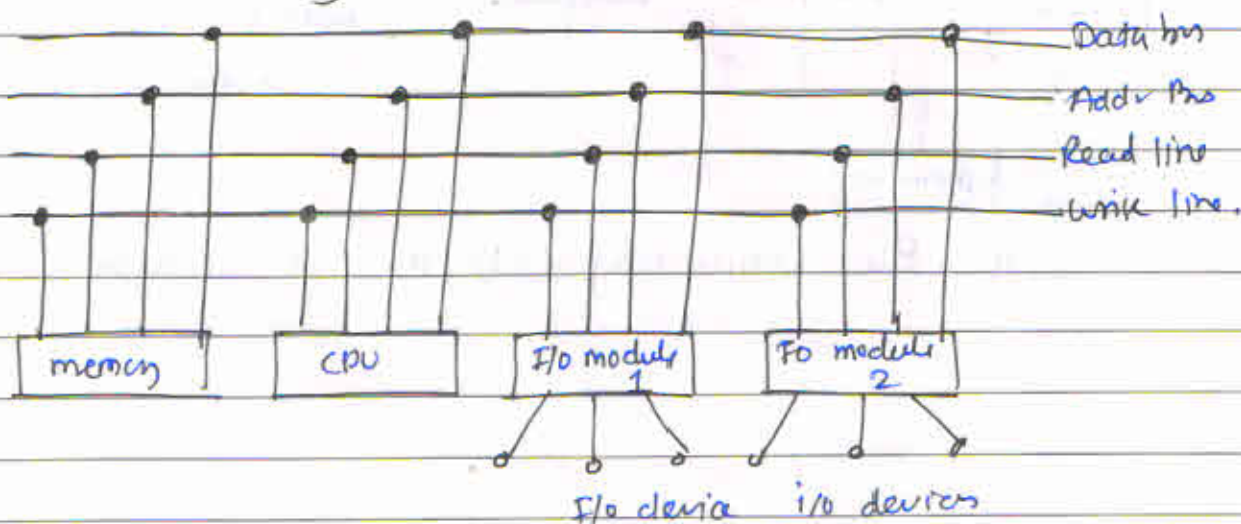 Data bus
Addr Bus
Read line
write line.
memory
CPU
I/o module
1
I/o module
2
I/o device i/o devices